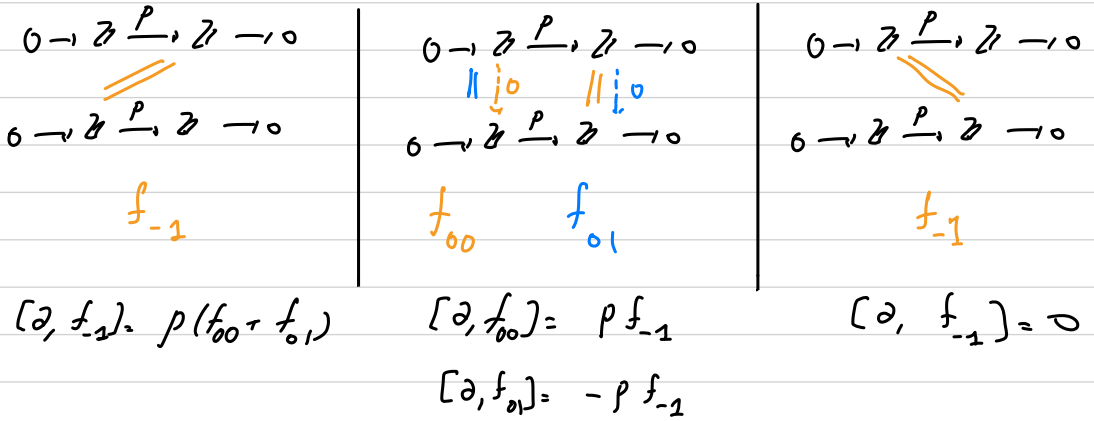 0 → ℤ —p→ ℤ → 0
0 → ℤ —p→ ℤ → 0
f_{-1}
[∂, f_{-1}] = p(f_{00} + f_{01})
0 → ℤ —p→ ℤ → 0
|| 0 || 0
0 → ℤ —p→ ℤ → 0
f_{00} f_{01}
[∂, f_{00}] = p f_{-1}
[∂, f_{01}] = - p f_{-1}
0 → ℤ —p→ ℤ → 0
0 → ℤ —p→ ℤ → 0
f_{-1}
[∂, f_{-1}] = 0